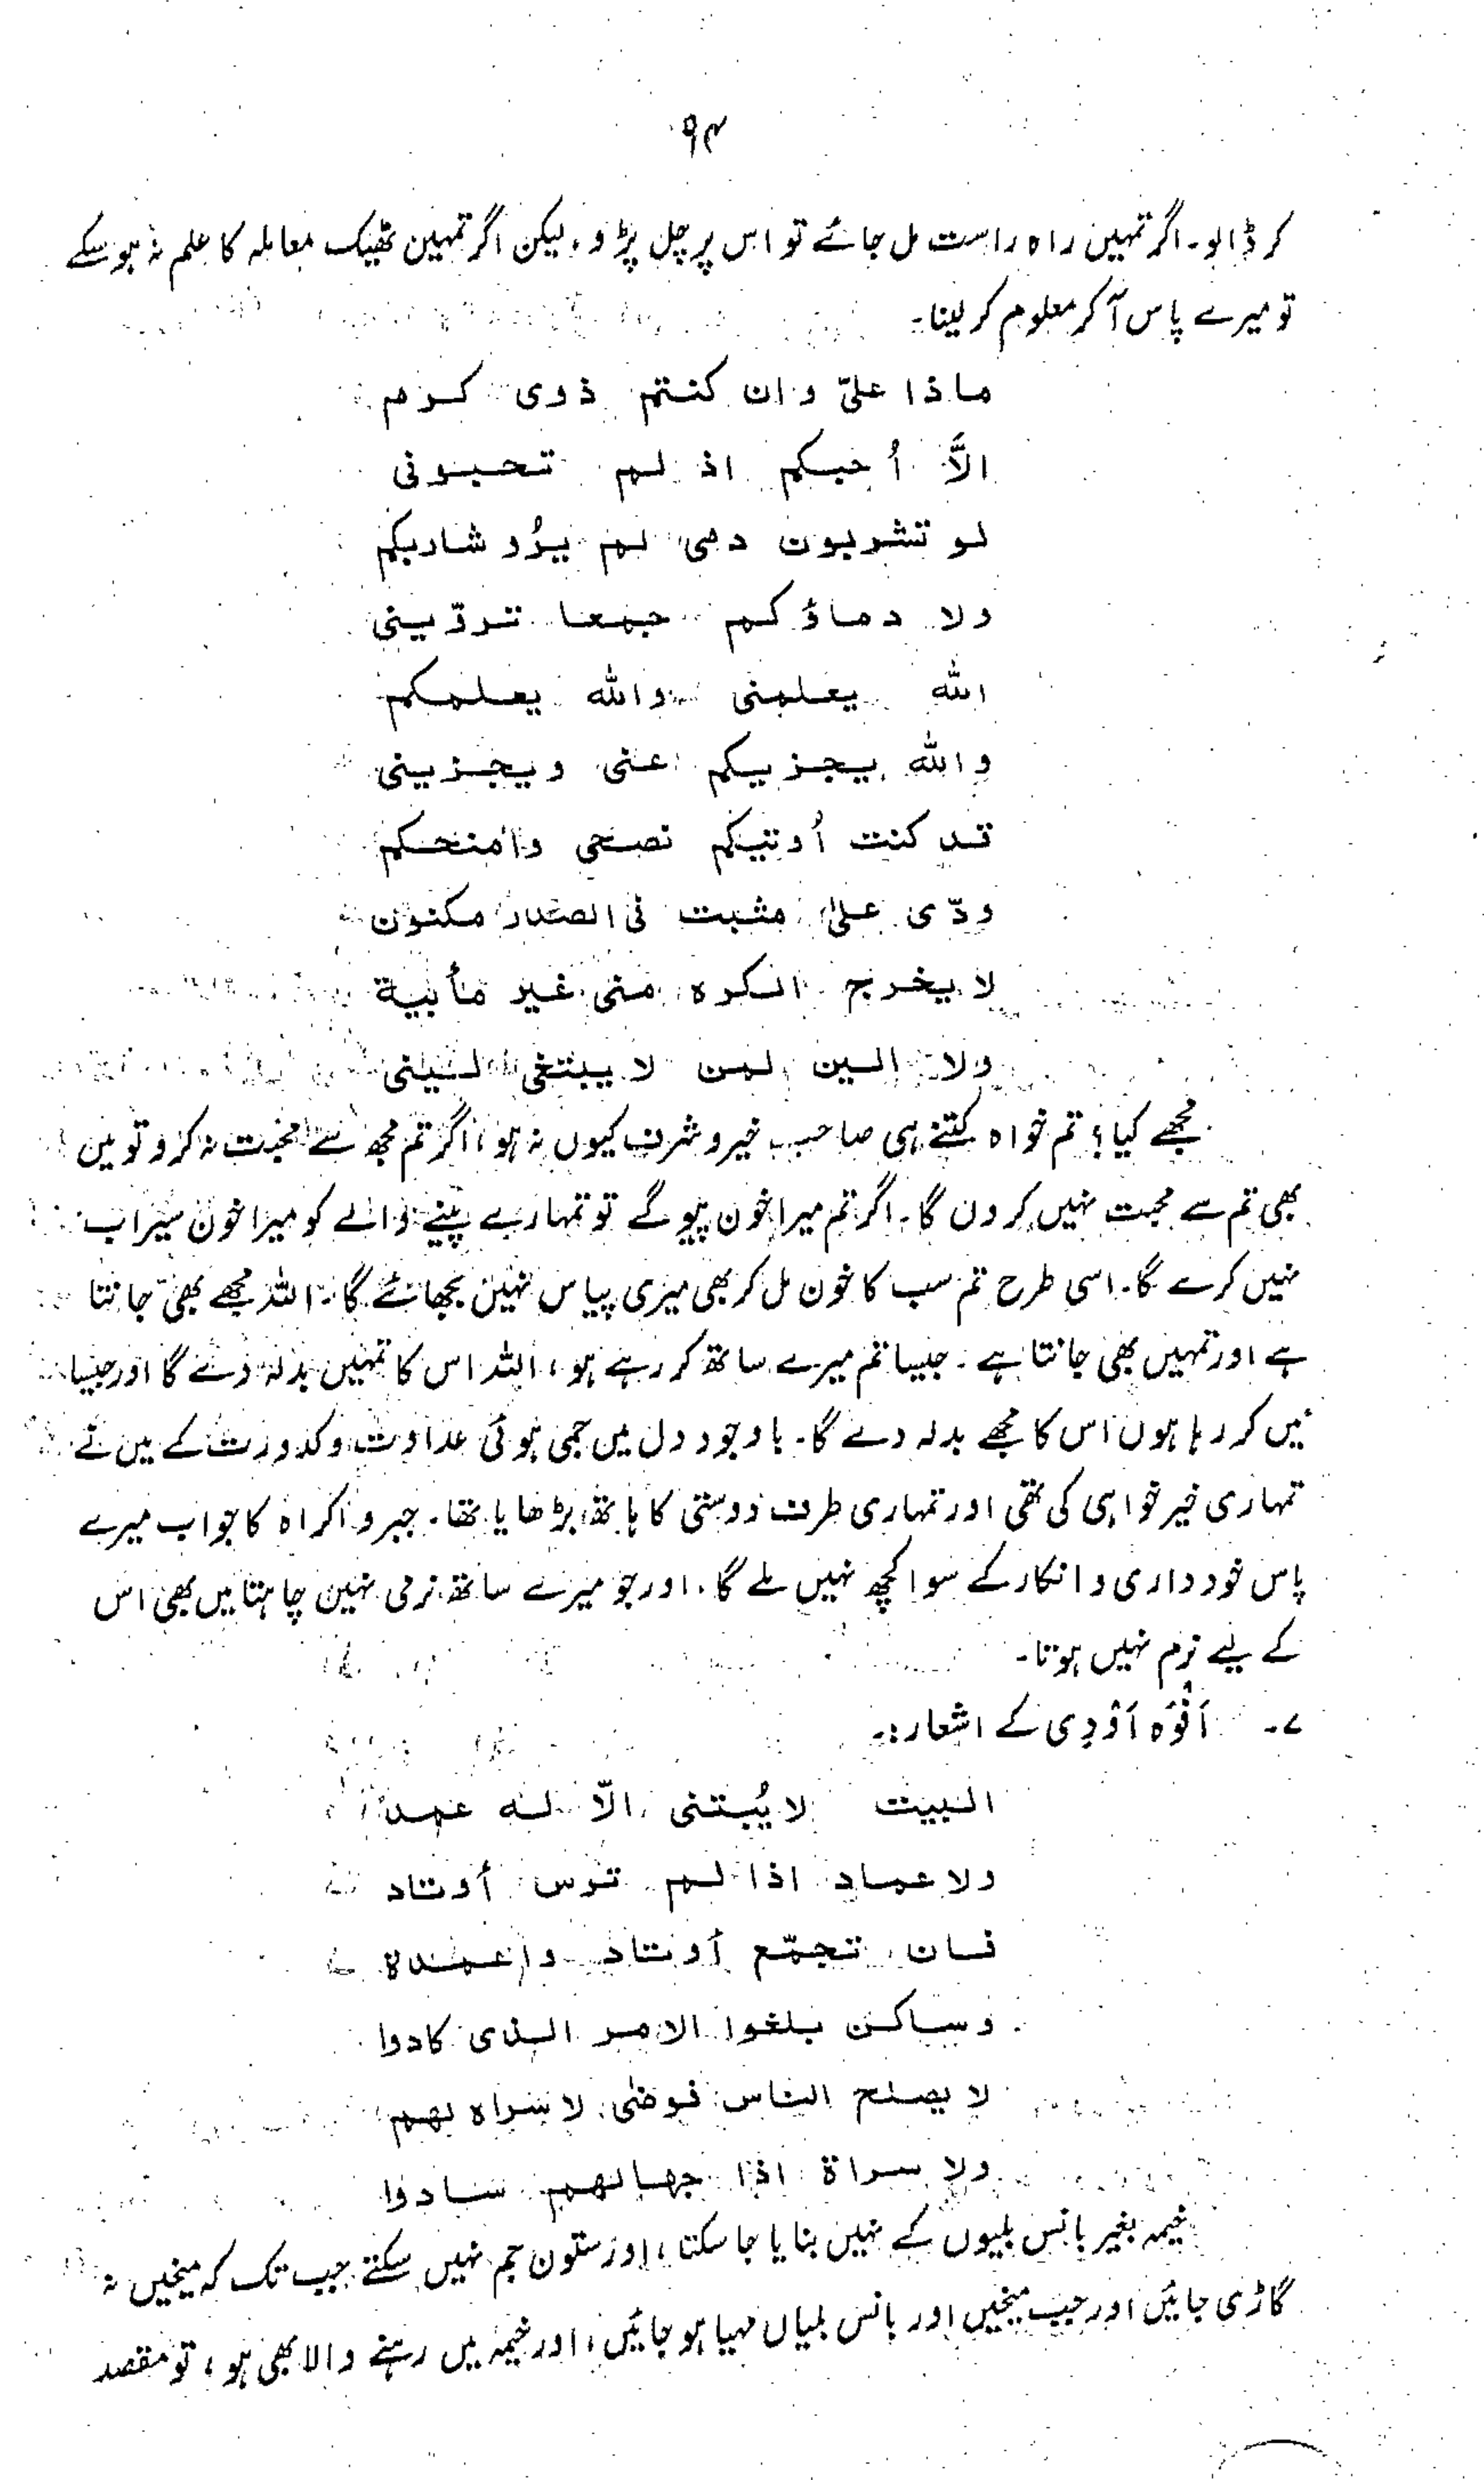 ۹۴
کر ڈالو۔ اگر تمہیں راہ راست مل جائے تو اس پر چل پڑو، لیکن اگر تمہیں ٹھیک معاملہ کا علم نہ ہو سکے
تو میرے پاس آ کر معلوم کر لینا۔
ماذا علیّ وان کنتم ذوی کرم
الاَّ أُحبکم اذ لم تحبونی
لو تشربون دمی لم یرُو شاربکم
ولا دماؤکم جمعا تروّینی
اللہ یعلمنی واللہ یعلمکم
واللہ یجزیکم عنی ویجزینی
قد کنت أُوتیکم نصحی وامنحکم
ودّی علیٰ مثبت فی الصدر مکنون
لا یخرج الکرہ منی غیر مأبیة
ولا الین لمن لا یبتغی لینی
مجھے کیا؟ تم خواہ کتنے ہی صاحب خیر و شرف کیوں نہ ہو، اگر تم مجھ سے محبت نہ کرو تو میں
بھی تم سے محبت نہیں کروں گا۔ اگر تم میرا خون پیو گے تو تمہارے پینے والے کو میرا خون سیراب
نہیں کرے گا۔ اسی طرح تم سب کا خون مل کر بھی میری پیاس نہیں بجھائے گا۔ اللہ مجھے بھی جانتا
ہے اور تمہیں بھی جانتا ہے۔ جیسا تم میرے ساتھ کر رہے ہو، اللہ اس کا تمہیں بدلہ دے گا اور جیسا
میں کر رہا ہوں اس کا مجھے بدلہ دے گا۔ باوجود دل میں جمی ہوئی عداوت و کدورت کے میں نے
تمہاری خیر خواہی کی تھی اور تمہاری طرف دوستی کا ہاتھ بڑھایا تھا۔ جبر و اکراہ کا جواب میرے
پاس خودداری و انکار کے سوا کچھ نہیں ملے گا۔ اور جو میرے ساتھ نرمی نہیں چاہتا میں بھی اس
کے لیے نرم نہیں ہوتا۔
۷۔ اَفْوَہ اَوْدِی کے اشعار:۔
البیت لا یُبتنی الاّ لہ عمد
ولا عماد اذا لم ترس أوتاد
فان تجمّع أوتاد واعمدة
وساکن بلغوا الامر الذی کادوا
لا یصلح الناس فوضٰی لا سراہ لهم
ولا سراة اذا جهالهم سادوا
خیمہ بغیر بانس بلیوں کے نہیں بنایا جا سکتا، اور ستون جم نہیں سکتے جب تک کہ میخیں نہ
گاڑی جائیں اور جب میخیں اور بانس بلیاں مہیا ہو جائیں، اور خیمہ میں رہنے والا بھی ہو، تو مقصد